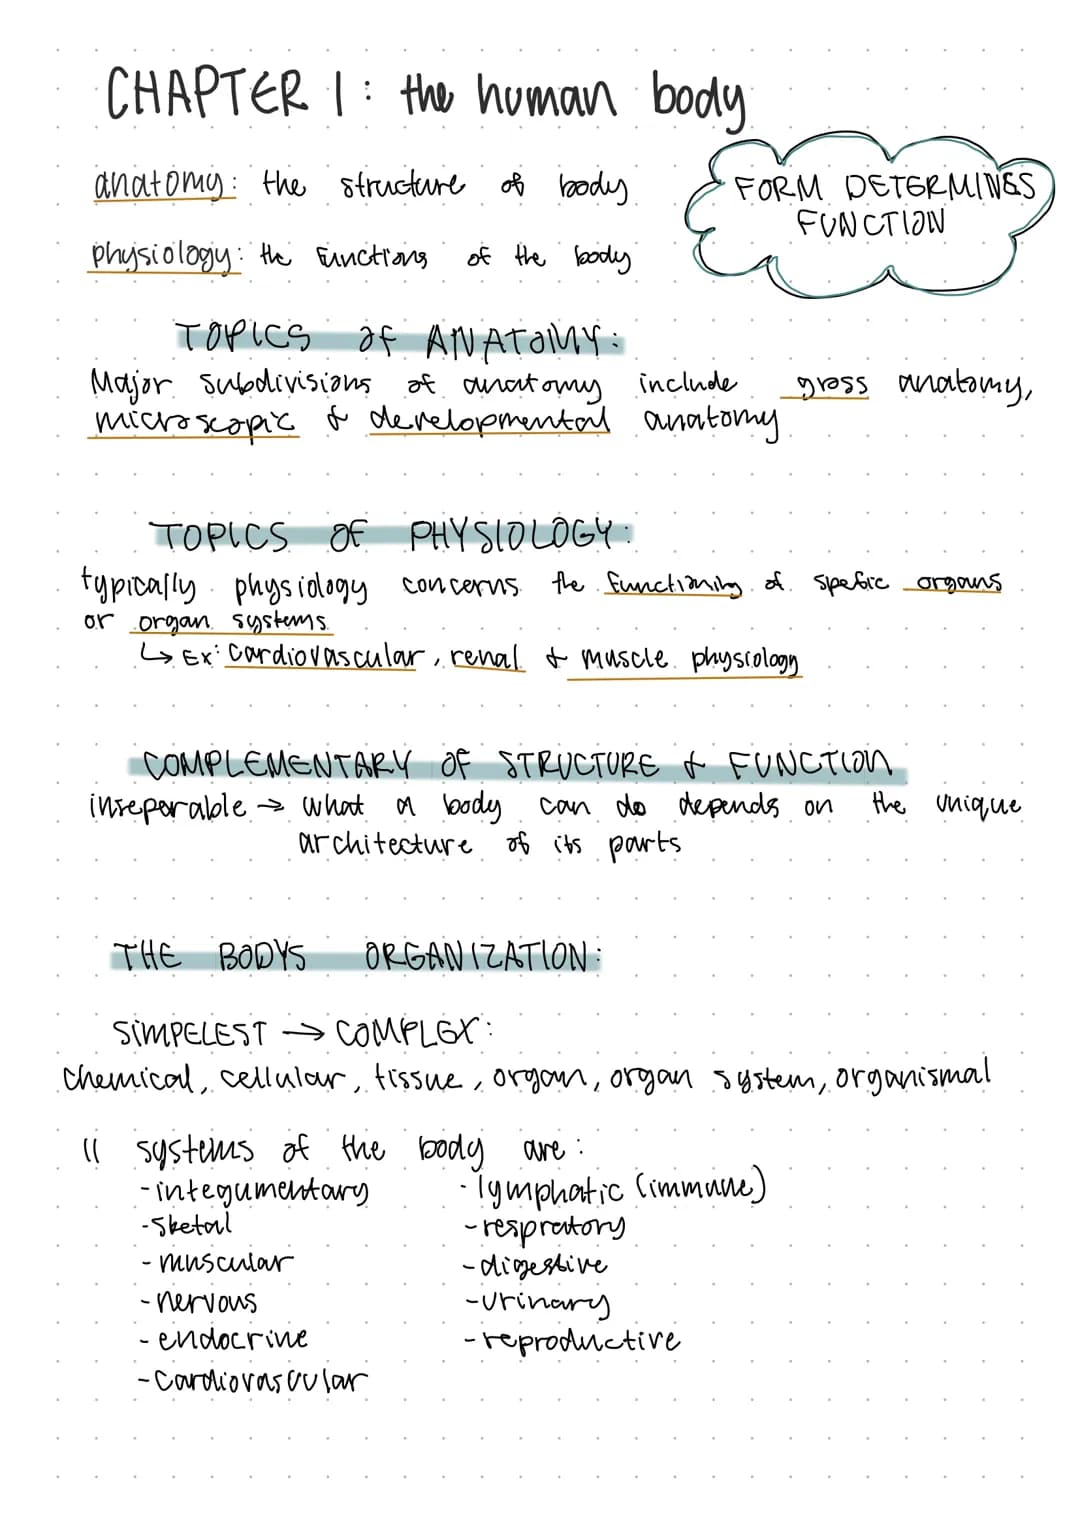 CHAPTER 1: the human body
anatomy: the structure of body
FORM DETERMINES
FUNCTION
physiology: the functions of the body
TOPICS of ANATOMY:
Major subdivisions of anatomy include gross anatomy,
microscopic & developmental anatomy
TOPICS OF PHYSIOLOGY:
typically physiology concerns the functioning of spefic organs
or organ systems
↳ Ex: cardiovascular, renal & muscle physiology
COMPLEMENTARY OF STRUCTURE & FUNCTION
inseparable → what a body can do depends on the unique
architecture of its parts
THE BODYS ORGANIZATION:
SIMPELEST → COMPLEX:
chemical, cellular, tissue, organ, organ system, organismal
11 systems of the body are:
-integumentary
-sketal
-muscular
-nervous
-endocrine
-cardiovascular
-lymphatic (immune)
-respratory
-digestive
-urinary
-reproductive